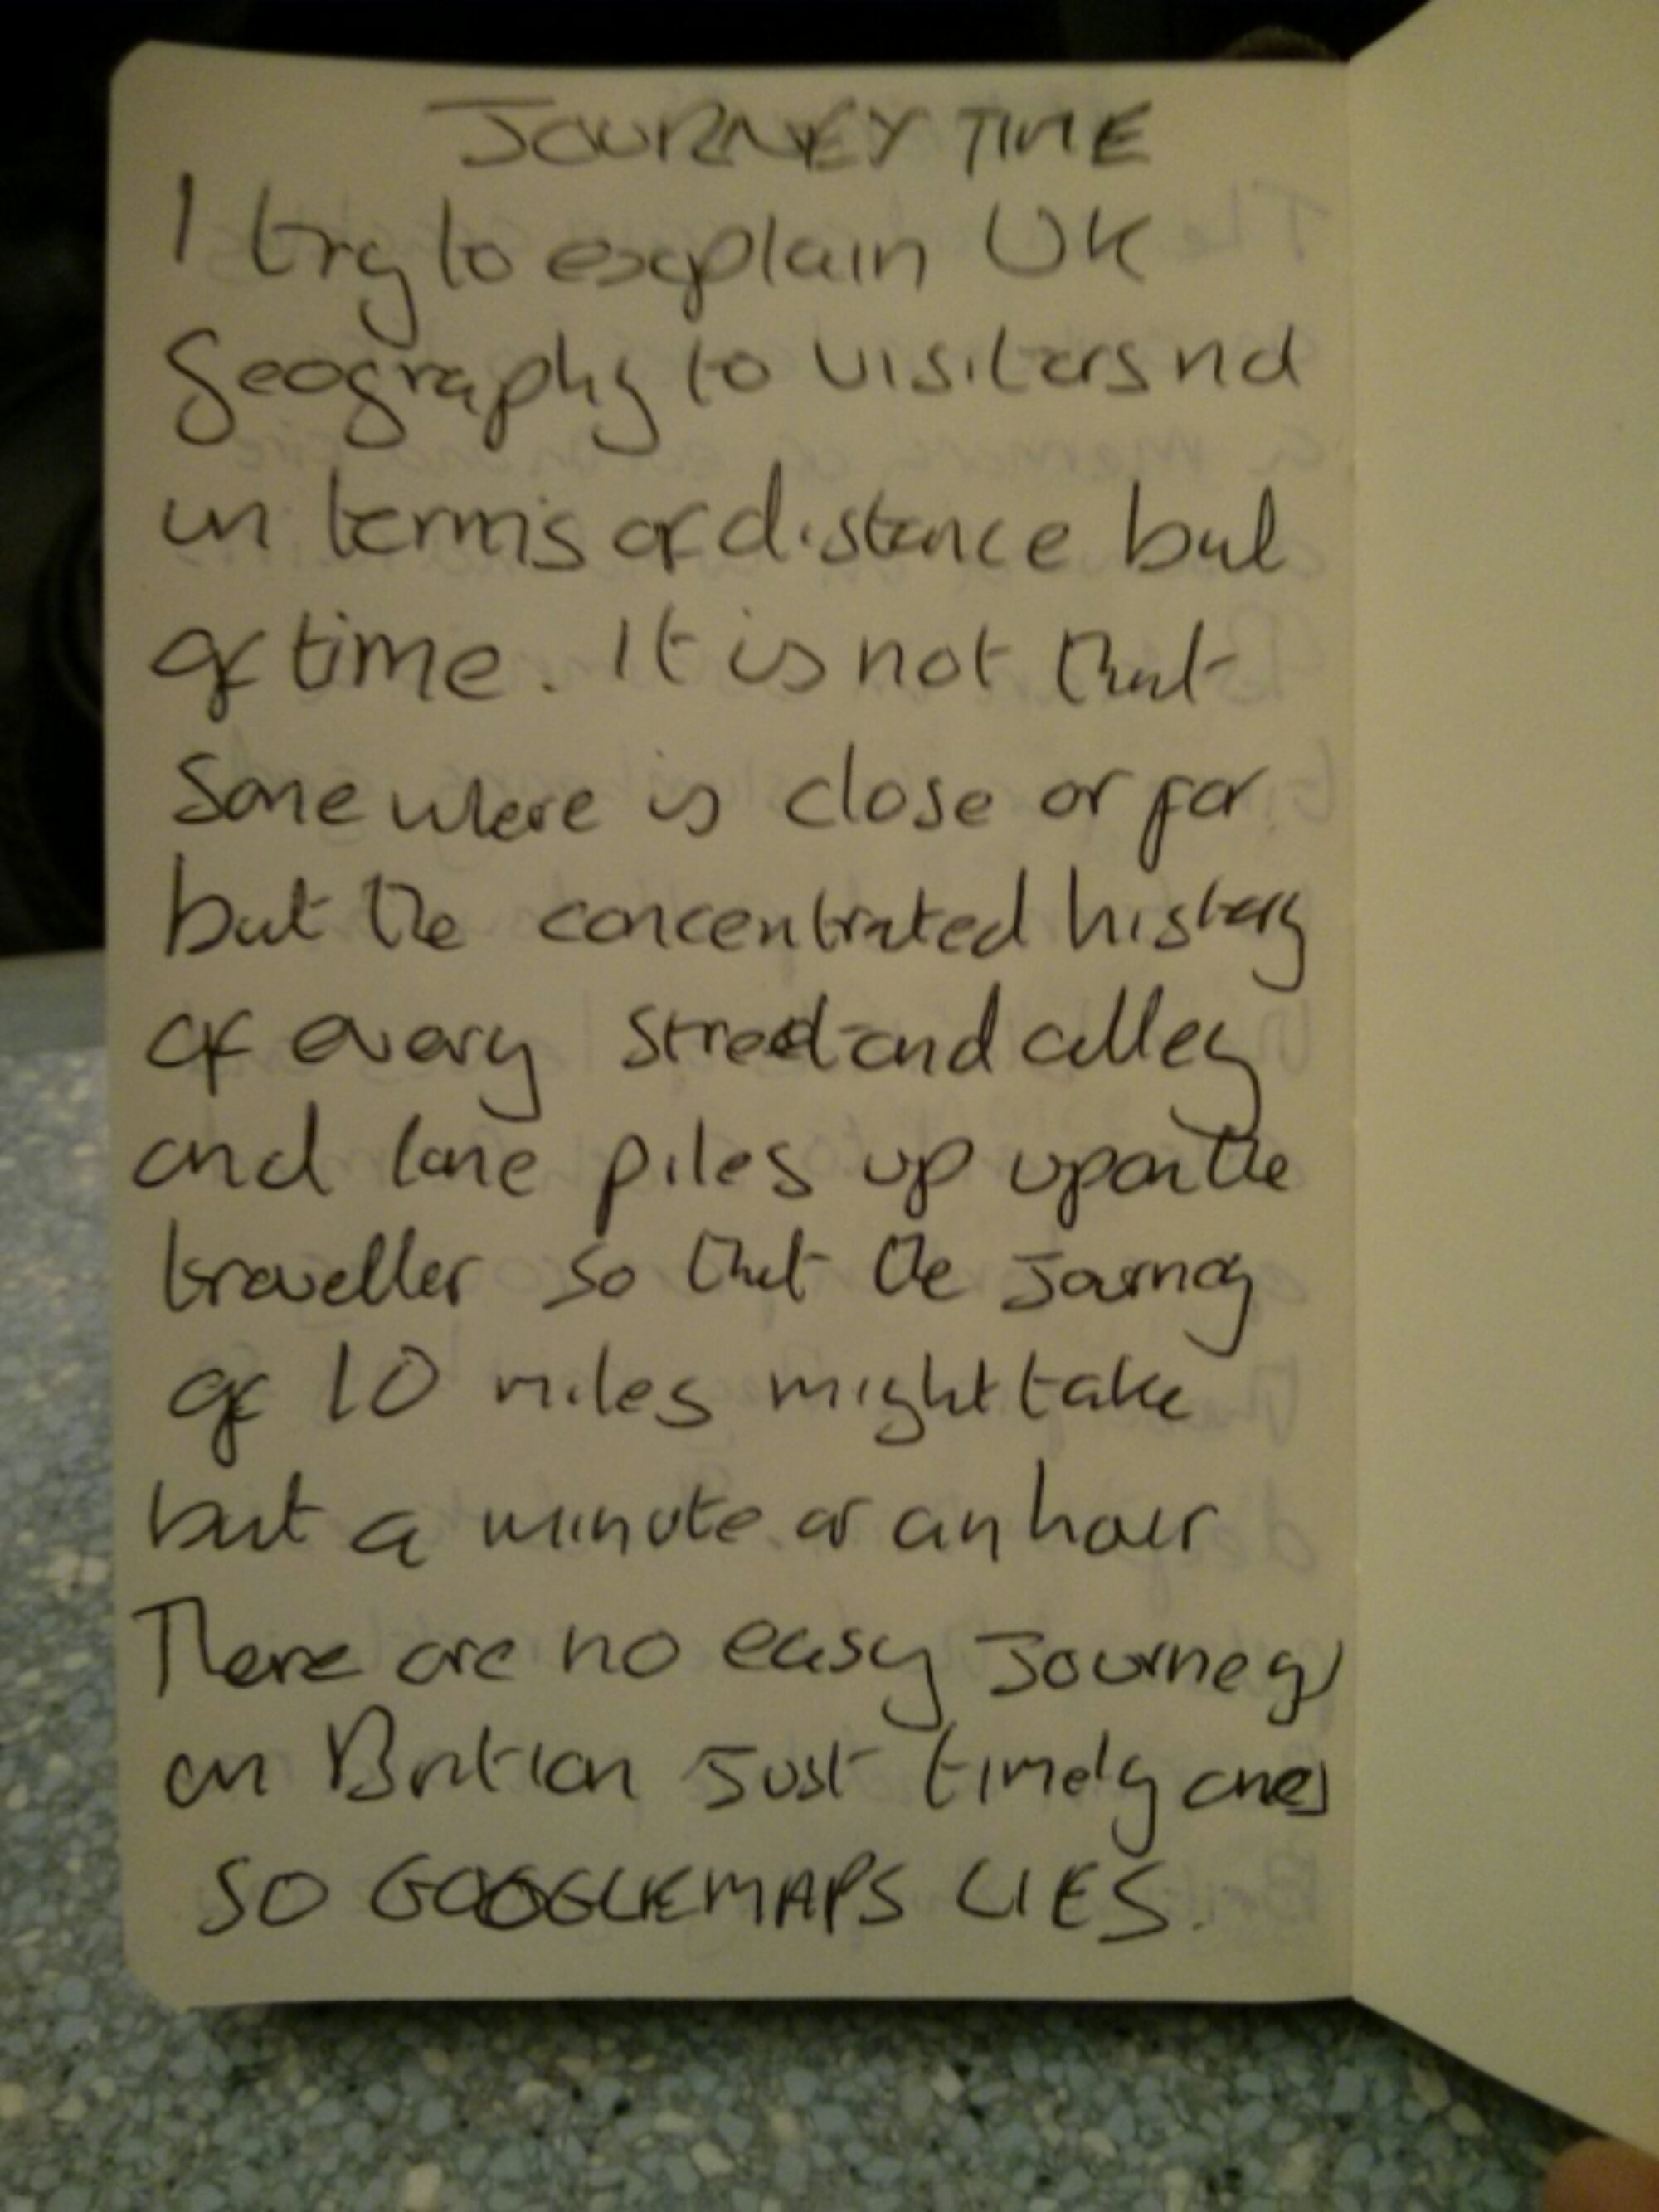 JOURNEY TIME
I try to explain UK
Geography to visitors nd
in terms of distance but
of time. It is not that
Somewhere is close or far
but the concentrated history
of every street and alley
and lane piles up upon the
traveller so that the Journey
of 10 miles might take
but a minute or an hour
There are no easy Journeys
on Brition Just timely ones
SO GOOGLEMAPS LIES.